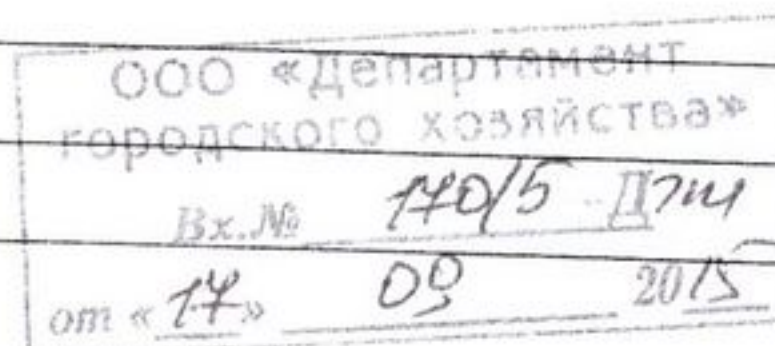 ООО «Департамент
городского хозяйства»
Вх.№ 170/5
от «17» 09 2015